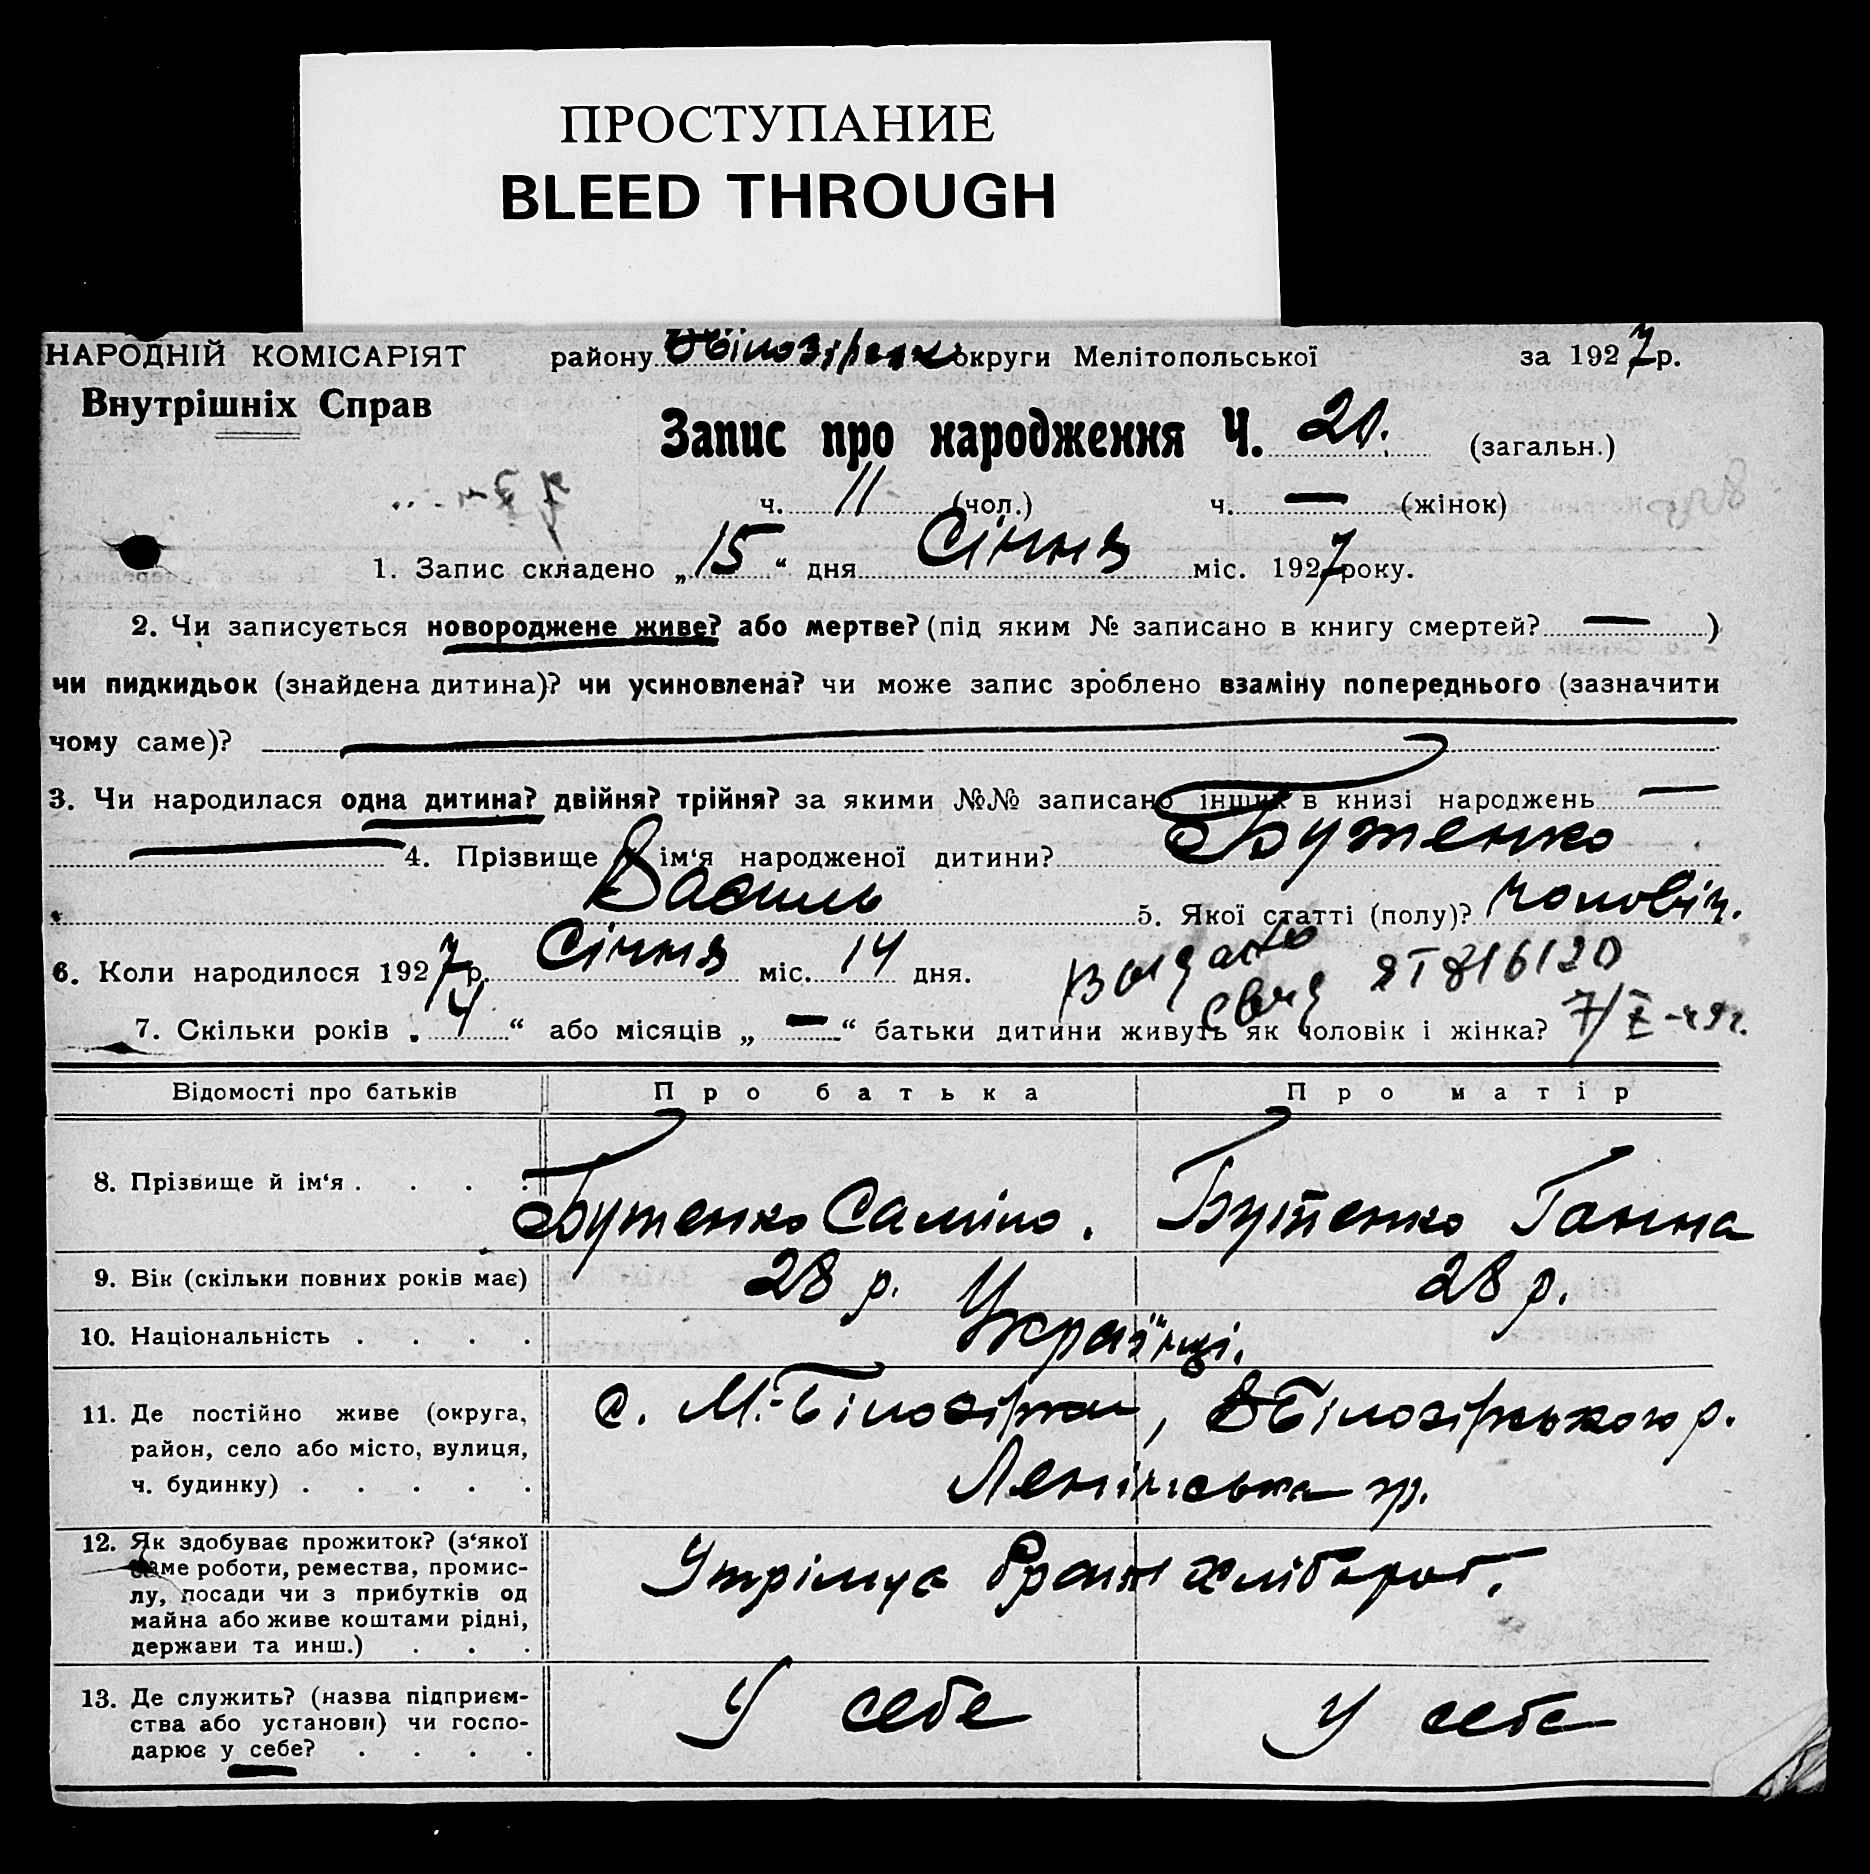 ПРОСТУПАНИЕ
BLEED THROUGH
НАРОДНІЙ КОМІСАРІЯТ району округи Мелітопольської за 1927 р.
Внутрішніх Справ
Запис про народження Ч. 20. (загальн.)
ч. 11 (чол.) ч. — (жінок)
1. Запис складено „15“ дня Січня міс. 1927 року.
2. Чи записується новороджене живе? або мертве? (під яким № записано в книгу смертей? — )
чи пидкидьок (знайдена дитина)? чи усиновлена? чи може запис зроблено взаміну попереднього (зазначити
чому саме)? —
3. Чи народилася одна дитина? двійня? трійня? за якими №№ записано інших в книзі народжень —
— 4. Прізвище й ім‘я народженої дитини? Бутенко
Василь 5. Якої статті (полу)? чоловіч.
6. Коли народилося 1927 р. Січня міс. 14 дня.
7. Скільки років „4“ або місяців „—“ батьки дитини живуть як чоловік і жінка?
Відомості про батьків Про батька Про матір
8. Прізвище й ім‘я . . . . Бутенко Саміло. Бутенко Ганна
9. Вік (скільки повних років має) 28 р. 28 р.
10. Національність . . . . Українці.
11. Де постійно живе (округа,
район, село або місто, вулиця,
ч. будинку) . . . . .
с. М.-Білозірка, ВБілозірського р.
Ленінська гр.
12. Як здобуває прожиток? (з‘якої
саме роботи, ремества, промис-
лу, посади чи з прибутків од
майна або живе коштами рідні,
держави та инш.) . . .
Утрімує хлібороб.
13. Де служить? (назва підприєм-
ства або установи) чи госпо-
дарює у себе? . . . .
У себе У себе